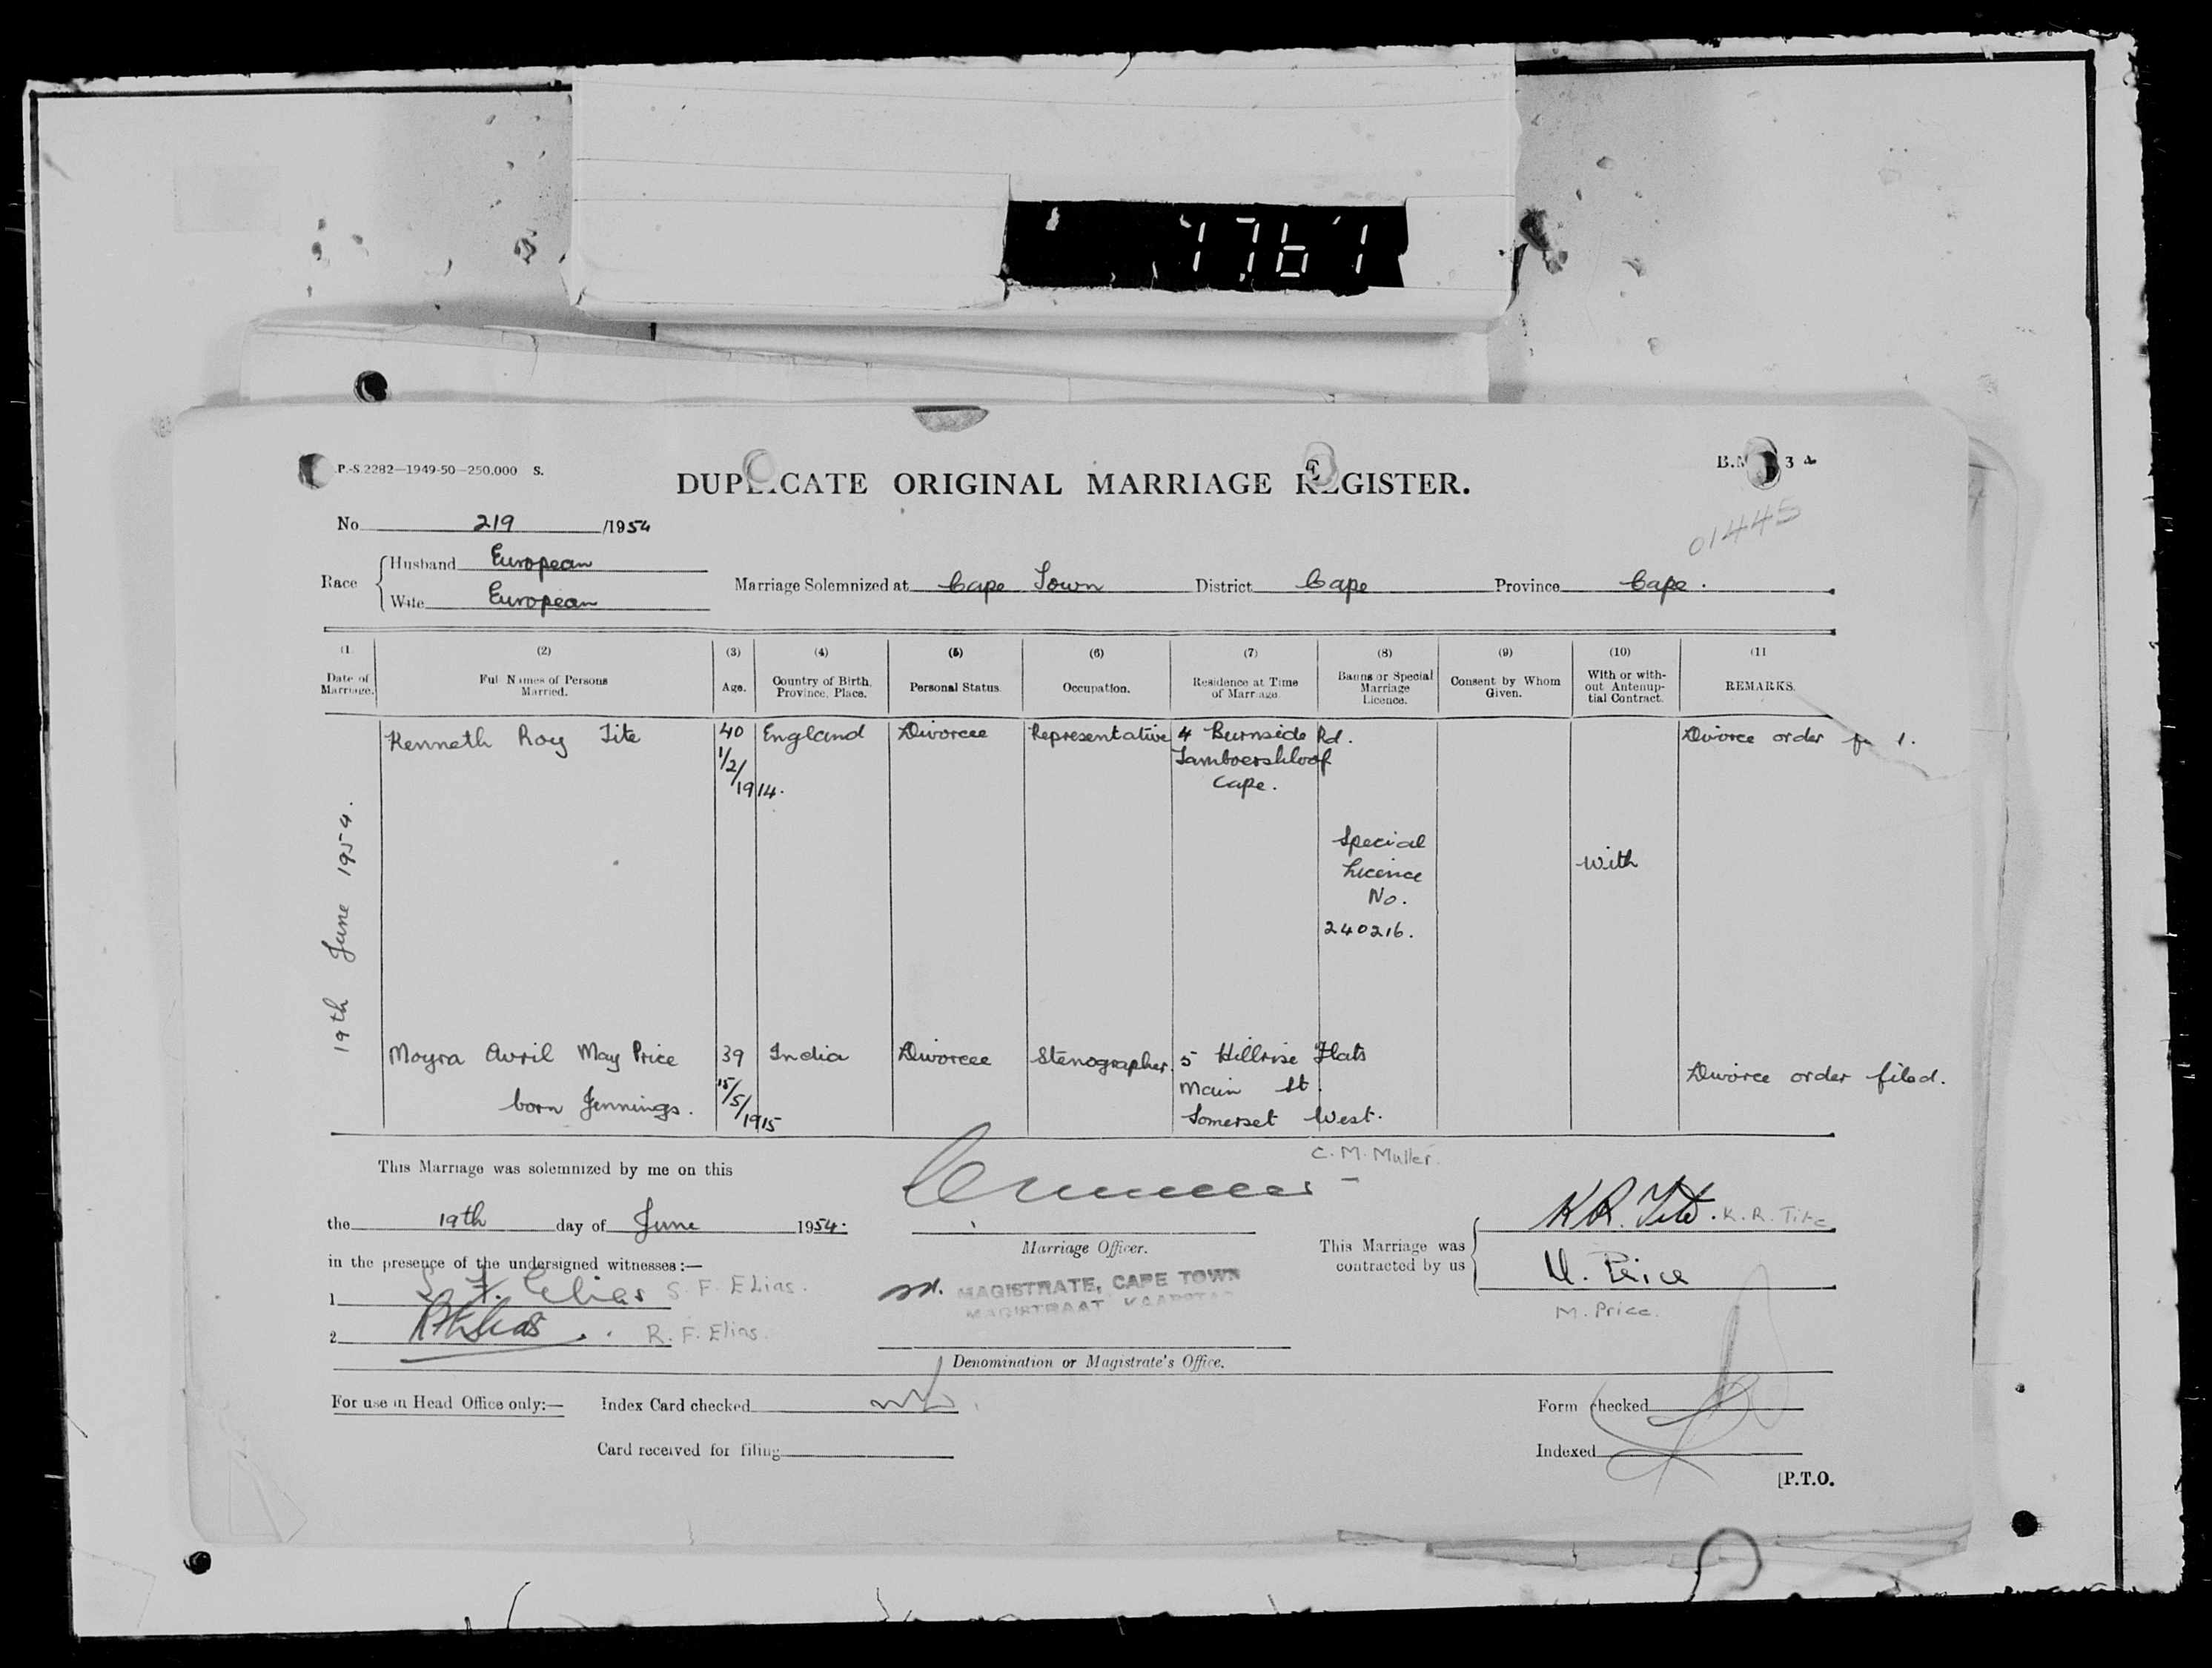 7761
P.-S.2282—1949-50—250,000 S.
DUPLICATE ORIGINAL MARRIAGE REGISTER.
01445
No 219 /1954
Race
Husband European
Wife European
Marriage Solemnized at Cape Town District Cape Province Cape.
(1 (2) (3) (4) (5) (6) (7) (8) (9) (10) (11
Date of Marriage.
Full Names of Persons Married.
Age.
Country of Birth, Province, Place.
Personal Status.
Occupation.
Residence at Time of Marriage.
Banns or Special Marriage Licence.
Consent by Whom Given.
With or without Antenuptial Contract.
REMARKS.
19th June 1954.
Kenneth Roy Tite
40
1/2/1914.
England
Divorcee
Representative
4 Burnside Rd.
Tamboerskloof
Cape.
Divorce order
Special
Licence
No.
240216.
With
Moyra Avril May Price
born Jennings.
39
15/5/1915
India
Divorcee
Stenographer.
5 Hillrise Flats
Main St.
Somerset West.
Divorce order filed.
This Marriage was solemnized by me on this
the 19th day of June 1954.
in the presence of the undersigned witnesses:—
1 S. F. Elias S. F. Elias.
2 R. F. Elias R. F. Elias.
C. M. Muller.
Marriage Officer.
MAGISTRATE, CAPE TOWN
MAGISTRAAT KAAPSTAD
Denomination or Magistrate's Office.
This Marriage was contracted by us
K R. Tite. K. R. Tite
M. Price
M. Price.
For use in Head Office only:— Index Card checked
Card received for filing
Form checked
Indexed
[P.T.O.